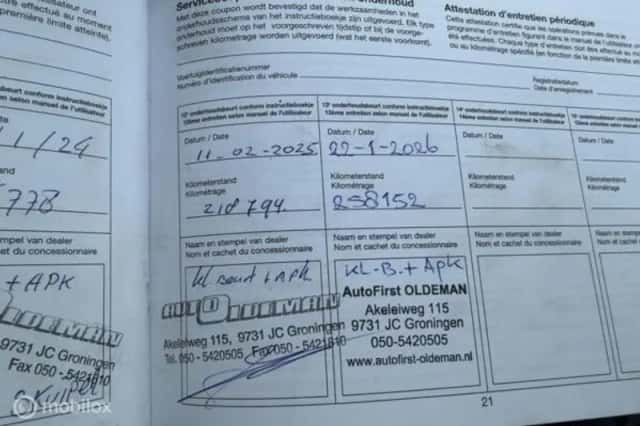 effectué au moment
première limite atteinte).
1/24
77B
stempel van dealer
cachet du concessionnaire
+ APK
9731 JC Groningen
Fax 050 - 5421810
Met deze coupon wordt bevestigd dat de werkzaamheden in het
onderhoudsschema van het instructieboekje zijn uitgevoerd. Elk type
onderhoud moet op het voorgeschreven tijdstip of bij de voorge-
schreven kilometrage worden uitgevoerd (wat het eerste voorkomt).
Attestation d'entretien périodique
Cette attestation certifie que les opérations prévues dans le
programme d'entretien figurant dans le manuel de l'utilisateur
été effectuées. Chaque type d'entretien doit être effectué
ou au kilométrage spécifié (en fonction de la première limite
Voertuigidentificatienummer
Numéro d'identification du véhicule
Registratiedatum
Date d'enregistrement
12e onderhoudsbeurt conform instructieboekje
12ème entretien selon manuel de l'utilisateur
Datum / Date
11-02-2025
Kilometerstand
Kilométrage
218794.
Naam en stempel van dealer
Nom et cachet du concessionnaire
kl beurt + apk
OLDEMAN
Akeleiweg 115, 9731 JC Groningen
Tel. 050-5420505 Fax 050 - 5421810
13e onderhoudsbeurt conform instructieboekje
13ème entretien selon manuel de l'utilisateur
Datum / Date
22-1-2026
Kilometerstand
Kilométrage
258152
Naam en stempel van dealer
Nom et cachet du concessionnaire
KL-B. + Apk
AutoFirst OLDEMAN
Akeleiweg 115
9731 JC Groningen
050-5420505
www.autofirst-oldeman.nl
14e onderhoudsbeurt conform instructieboekje
14ème entretien selon manuel de l'utilisateur
Datum / Date
Kilometerstand
Kilométrage
Naam en stempel van dealer
Nom et cachet du concessionnaire
15e onderhoudsbeurt
15ème entretien selon
Datum / Date
Kilometerstand
Kilométrage
Naam en stempel
Nom et cachet du
21
mobilox